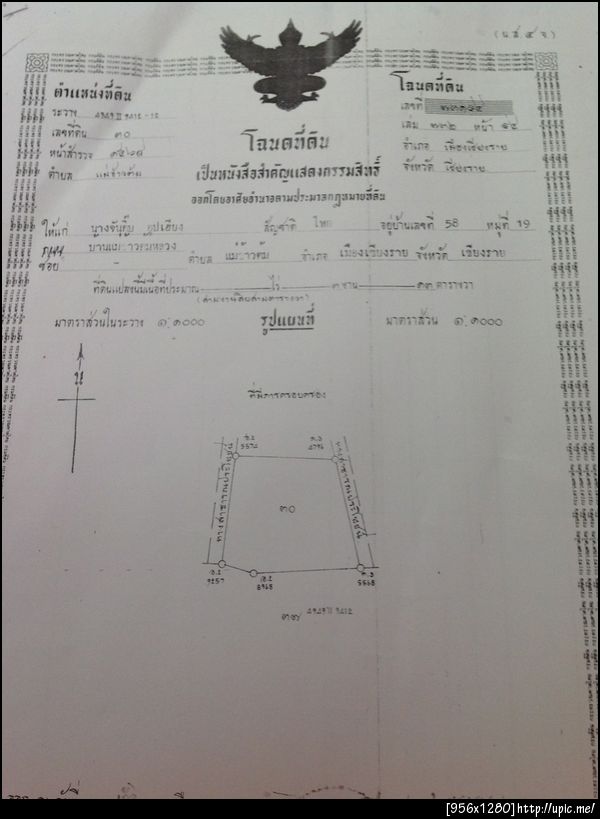 (น.ส.๔ จ.)
ตำแหน่งที่ดิน
ระวาง 4949 II 9412-12
เลขที่ดิน ๓๐
หน้าสำรวจ
ตำบล แม่ข้าวต้ม
โฉนดที่ดิน
เลขที่
เล่ม ๒๓๒ หน้า ๔๔
อำเภอ เมืองเชียงราย
จังหวัด เชียงราย
โฉนดที่ดิน
เป็นหนังสือสำคัญแสดงกรรมสิทธิ์
ออกโดยอาศัยอำนาจตามประมวลกฎหมายที่ดิน
ให้แก่ สัญชาติ ไทย อยู่บ้านเลขที่ 58 หมู่ที่ 19
ถนน บ้านแม่ข้าวต้มหลวง
ซอย - ตำบล แม่ข้าวต้ม อำเภอ เมืองเชียงราย จังหวัด เชียงราย
ที่ดินแปลงนี้มีเนื้อที่ประมาณ - ไร่ ๓ งาน ๑๓ ตารางวา
(สามงานสิบสามตารางวา)
มาตราส่วนในระวาง ๑:๑๐๐๐ รูปแผนที่ มาตราส่วน ๑:๑๐๐๐
น
ที่มีการครอบครอง
5574
ทางสาธารณประโยชน์
๓๐
ทางสาธารณประโยชน์
9257
8968
5568
๓๗ 4949 II 9412
[956x1280]http://upic.me/